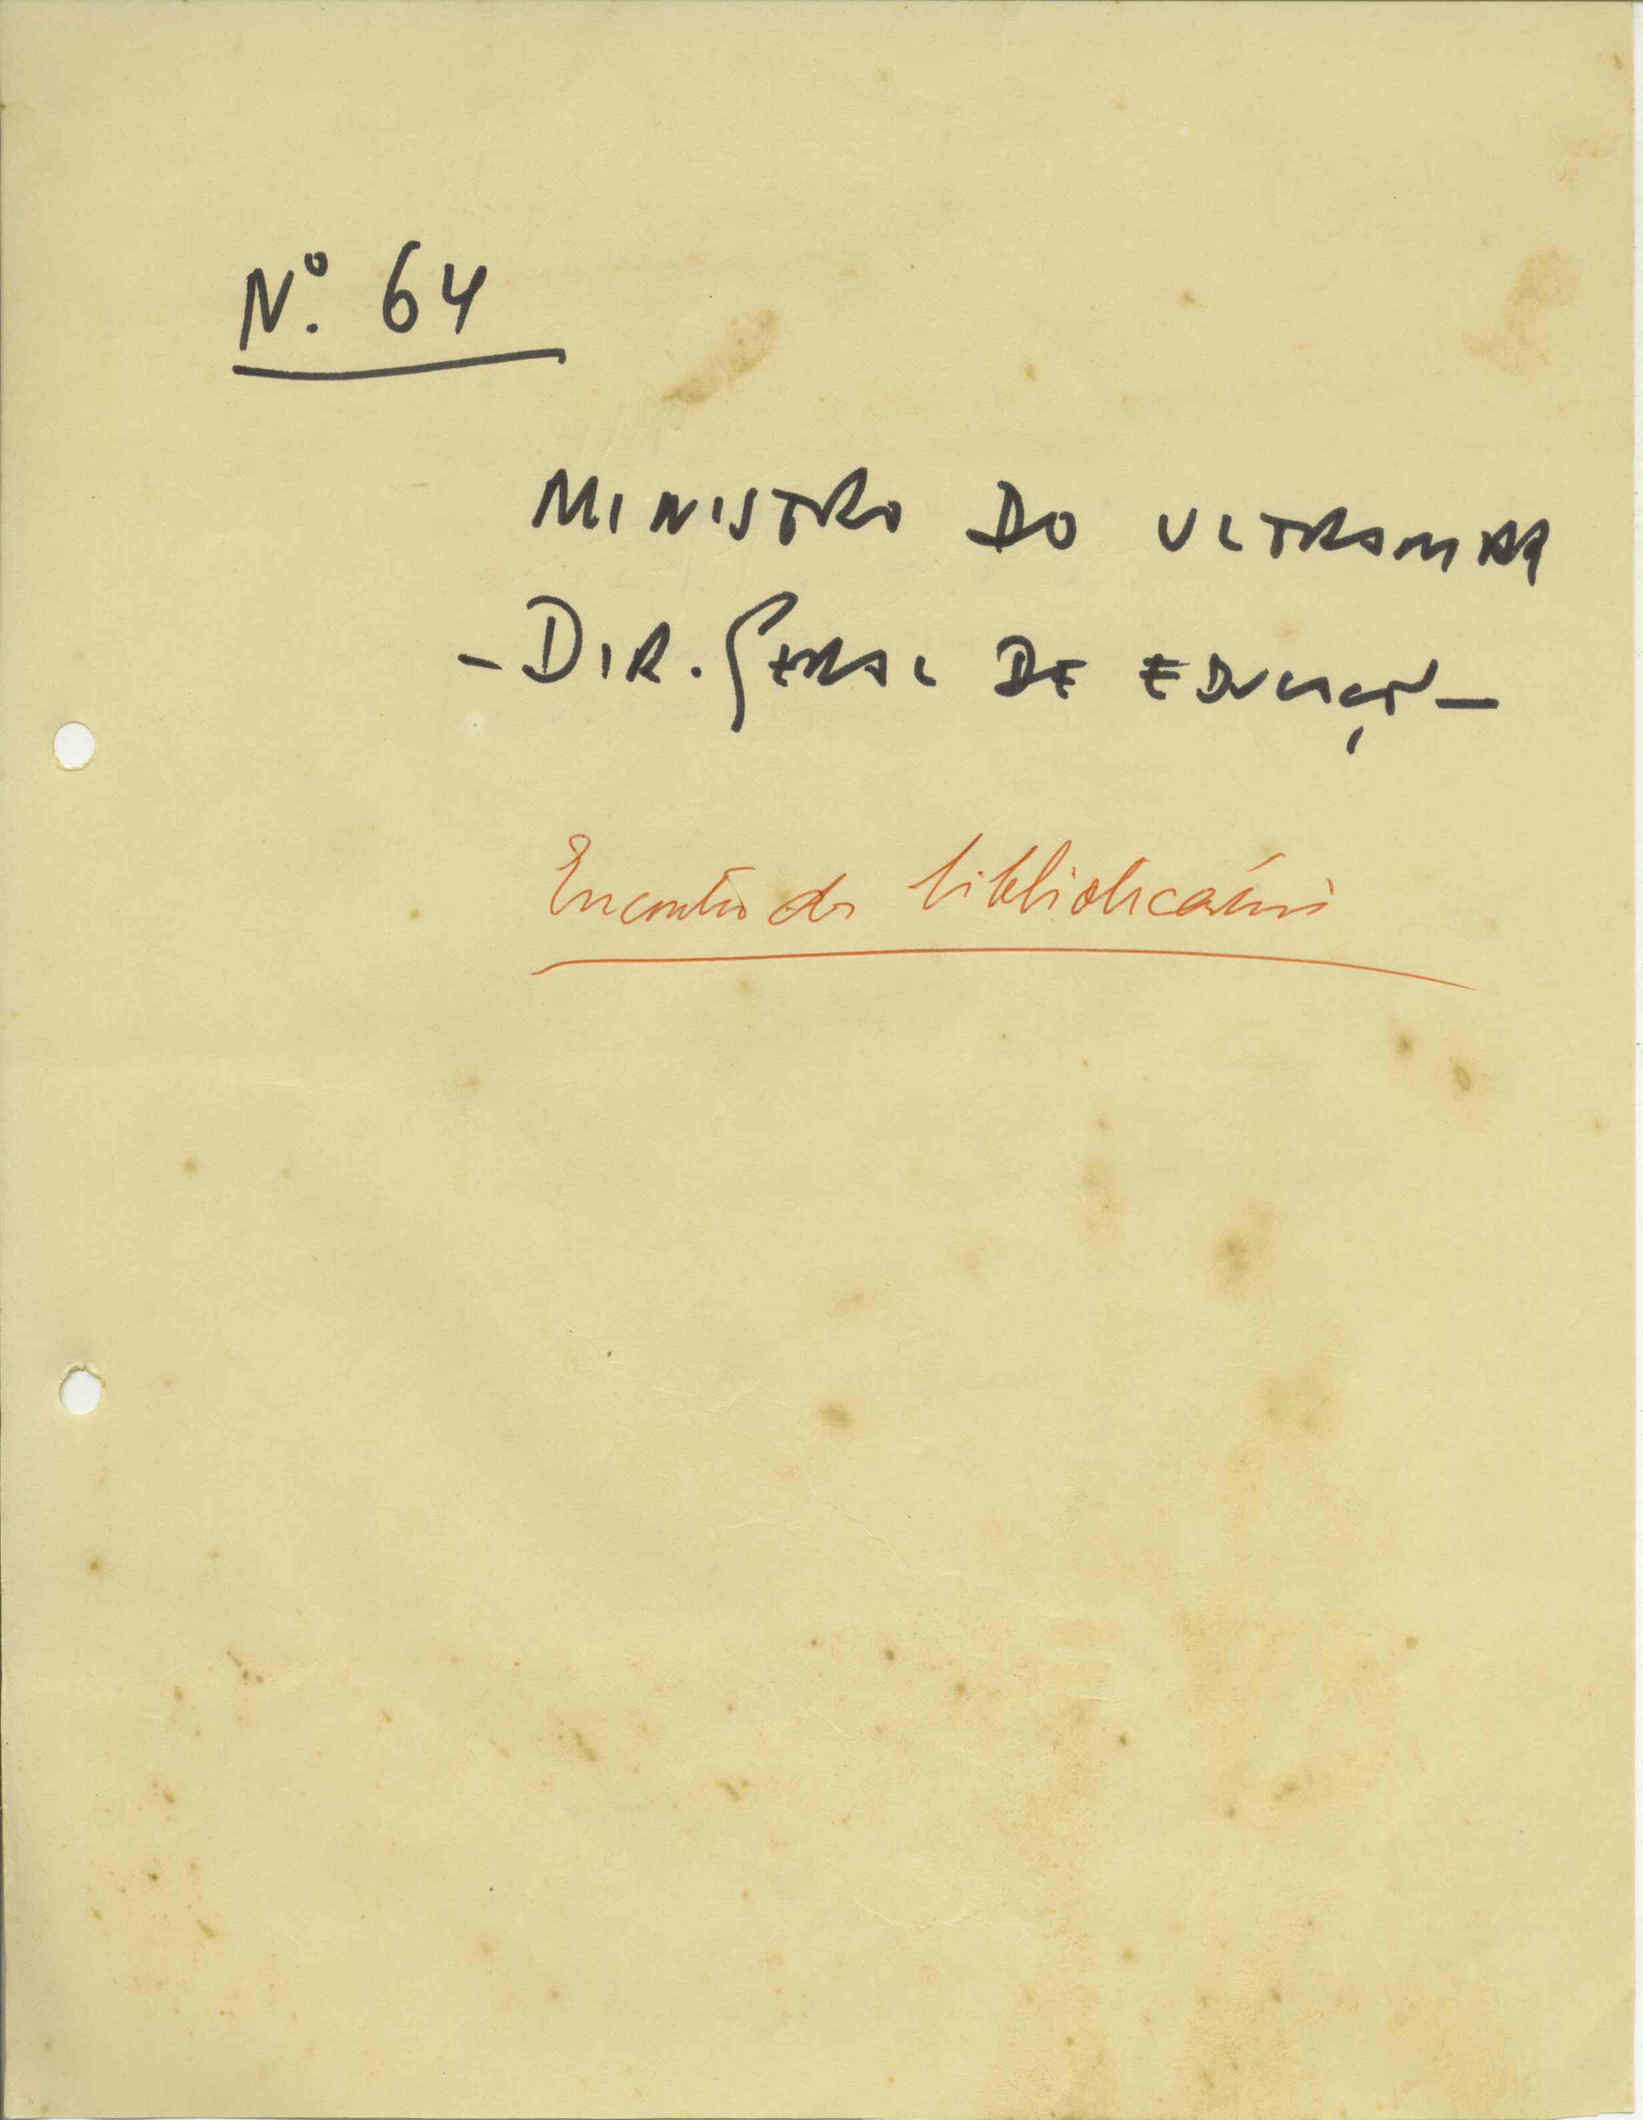 Nº. 64
MINISTRO DO ULTRAMAR
- DIR. GERAL DE EDUCAÇÃO -
Encontro de bibliotecários